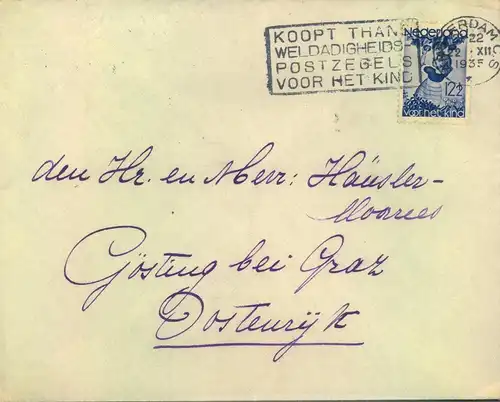 KOOPT THANS
WELDADIGHEIDS
POSTZEGELS
VOOR HET KIND
Nederland
12½
voor het kind
ERDAM
22
XII
1935
den Hr. en Mevr: Häusler-
Göting bei Graz
Oostenrijk